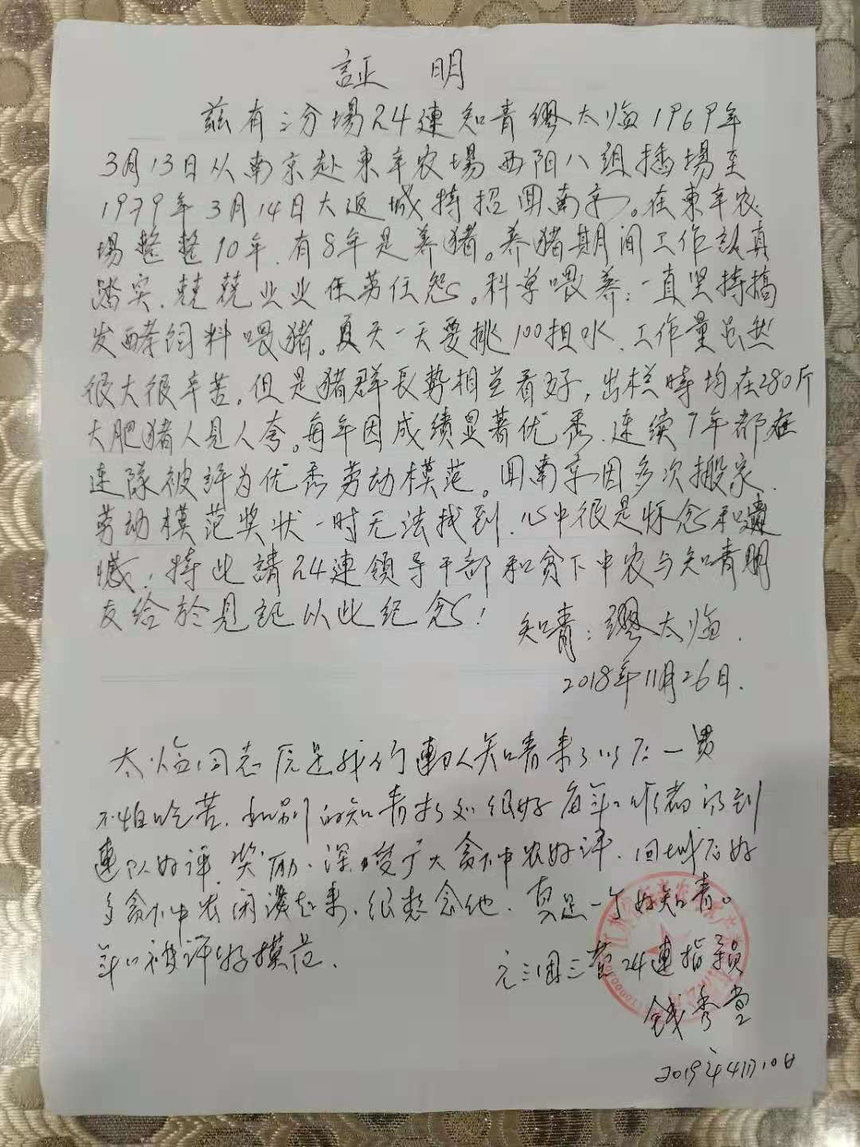 証 明
兹有三分場24連知青缪太临1969年
3月13日从南京赴東辛农場西阳八組插場至
1979年3月14日大返城特招回南京。在東辛农
場整整10年,有8年是养猪。养猪期间工作認真
踏实,兢兢业业任劳任怨。科学喂养:一直坚持搞
发酵饲料喂猪。夏天一天要挑100担水,工作量虽然
很大很辛苦,但是猪群長势相当看好,出栏時均在280斤
大肥猪人見人夸。每年因成绩显著优秀,連续7年都在
連隊被評为优秀劳动模范。回南京因多次搬家,
劳动模范奖状一时无法找到,心中很是怀念和遗
憾!特此請24連領导干部和贫下中农与知青朋
友给於見証以此纪念!
知青:缪太临.
2018年11月26日.
太临同志 是我们連 知青来了以后一贯
不怕吃苦.和别的知青相处很好 每年工作都得到
連队好评,奖励.深受广大贫下中农好评.回城后好
多贫下中农闲谈起来.很想念他.真是一个好知青。
年年被评好模范.
三团三营24連指导員
錢秀堂
2019年4月10日